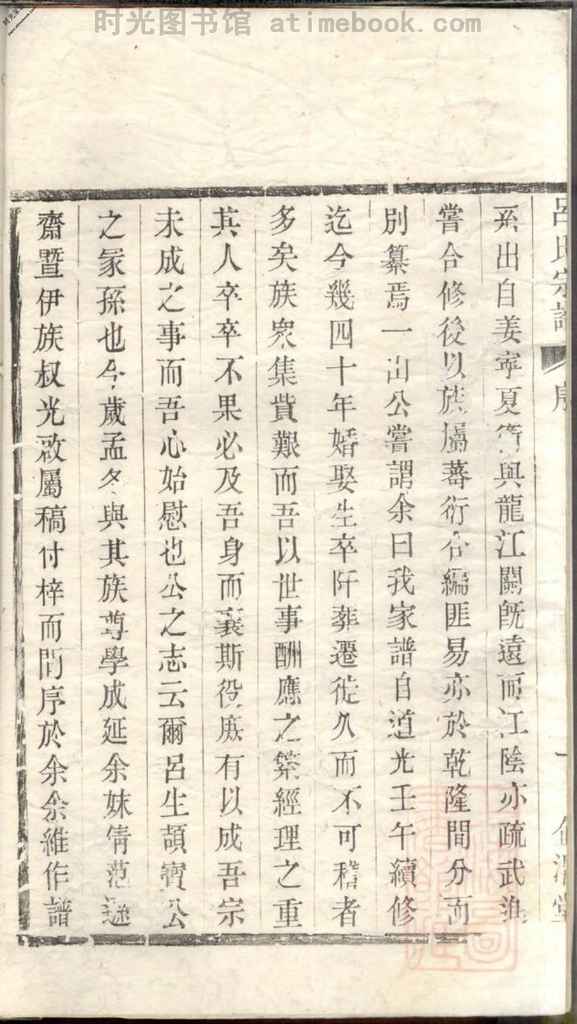 时光图书馆 atimebook.com
呂氏宗譜 序 一
系出自姜寧夏衛與龍江關旣遠而江陰亦疏武進
嘗合修後以族屬蕃衍合編匪易亦於乾隆間分而
別纂焉一山公嘗謂余曰我家譜自道光壬午續修
迄今幾四十年婚娶生卒阡葬遷徙久而不可稽者
多矣族衆集貲艱而吾以世事酬應之繁經理之重
其人卒卒不果必及吾身而襄斯役庶有以成吾宗
未成之事而吾心始慰也公之志云爾呂生頡寳公
之冢孫也今歲孟冬與其族尊學成延余妹倩范
齋暨伊族叔光啟屬稿付梓而問序於余余維作譜